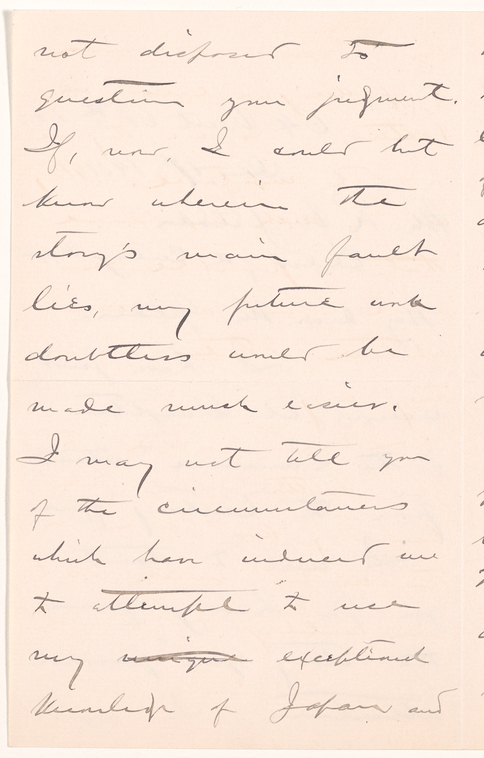 not disposed to
question your judgment.
If, now, I could but
know wherein the
story's main fault
lies, my future work
doubtless would be
made much easier.
I may not tell you
of the circumstances
which have induced me
to attempt to use
my unique exceptional
knowledge of Japan and